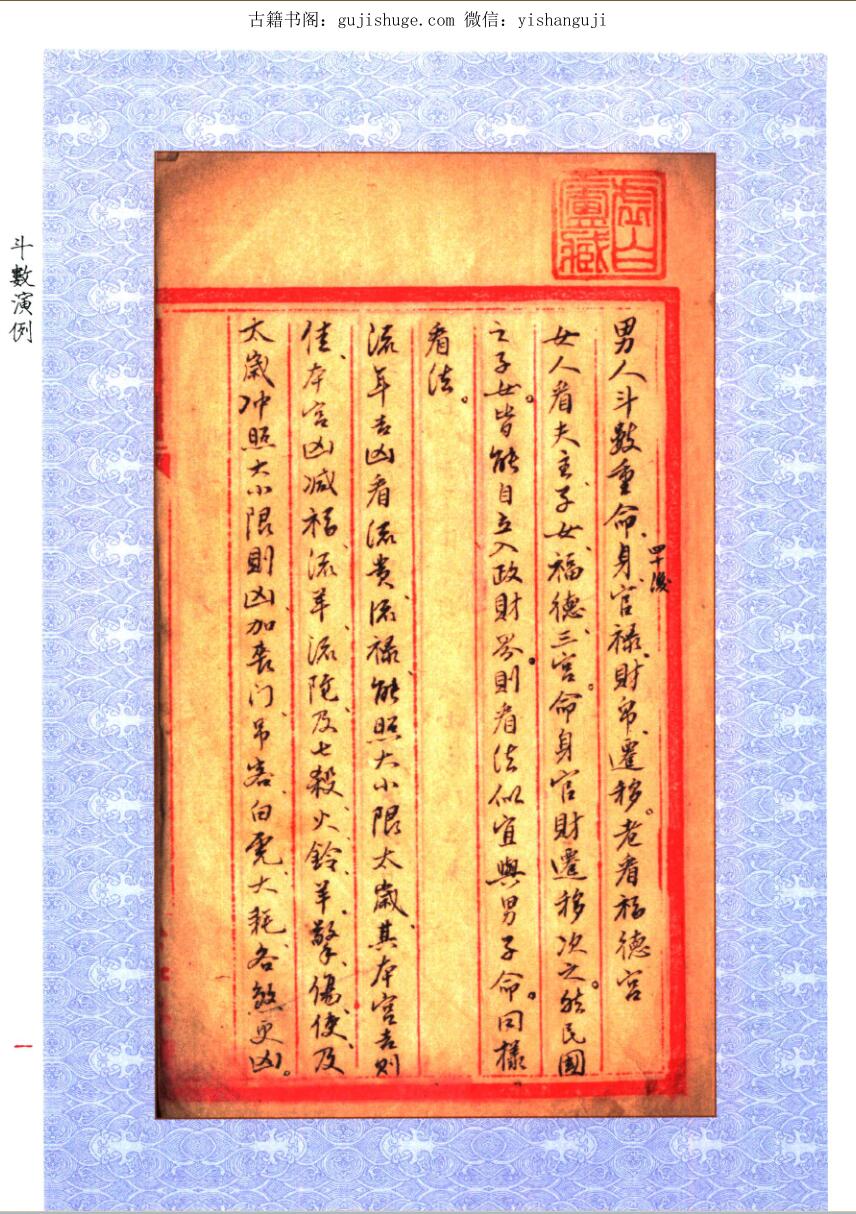 古籍书阁：gujishuge.com 微信：yishanguji
斗數演例
虛白
廬藏
男人斗数重命、身、官禄、財帛、遷移。老看福德宫
四十後
女人看夫主、子女、福德、三宫。命身官財遷移次之。然民國
之子女。皆能自立入政財界。則看法似宜與男子命。同樣
看法。
流年吉凶看流貴、流禄、能照大小限太歲、其本宫吉則
佳、本宫凶减福、流羊、流陀、及七殺、火鈴、羊擎、傷使、及
太歲冲照大小限則凶、加喪门、吊客、白虎、大耗、各煞更凶。
一